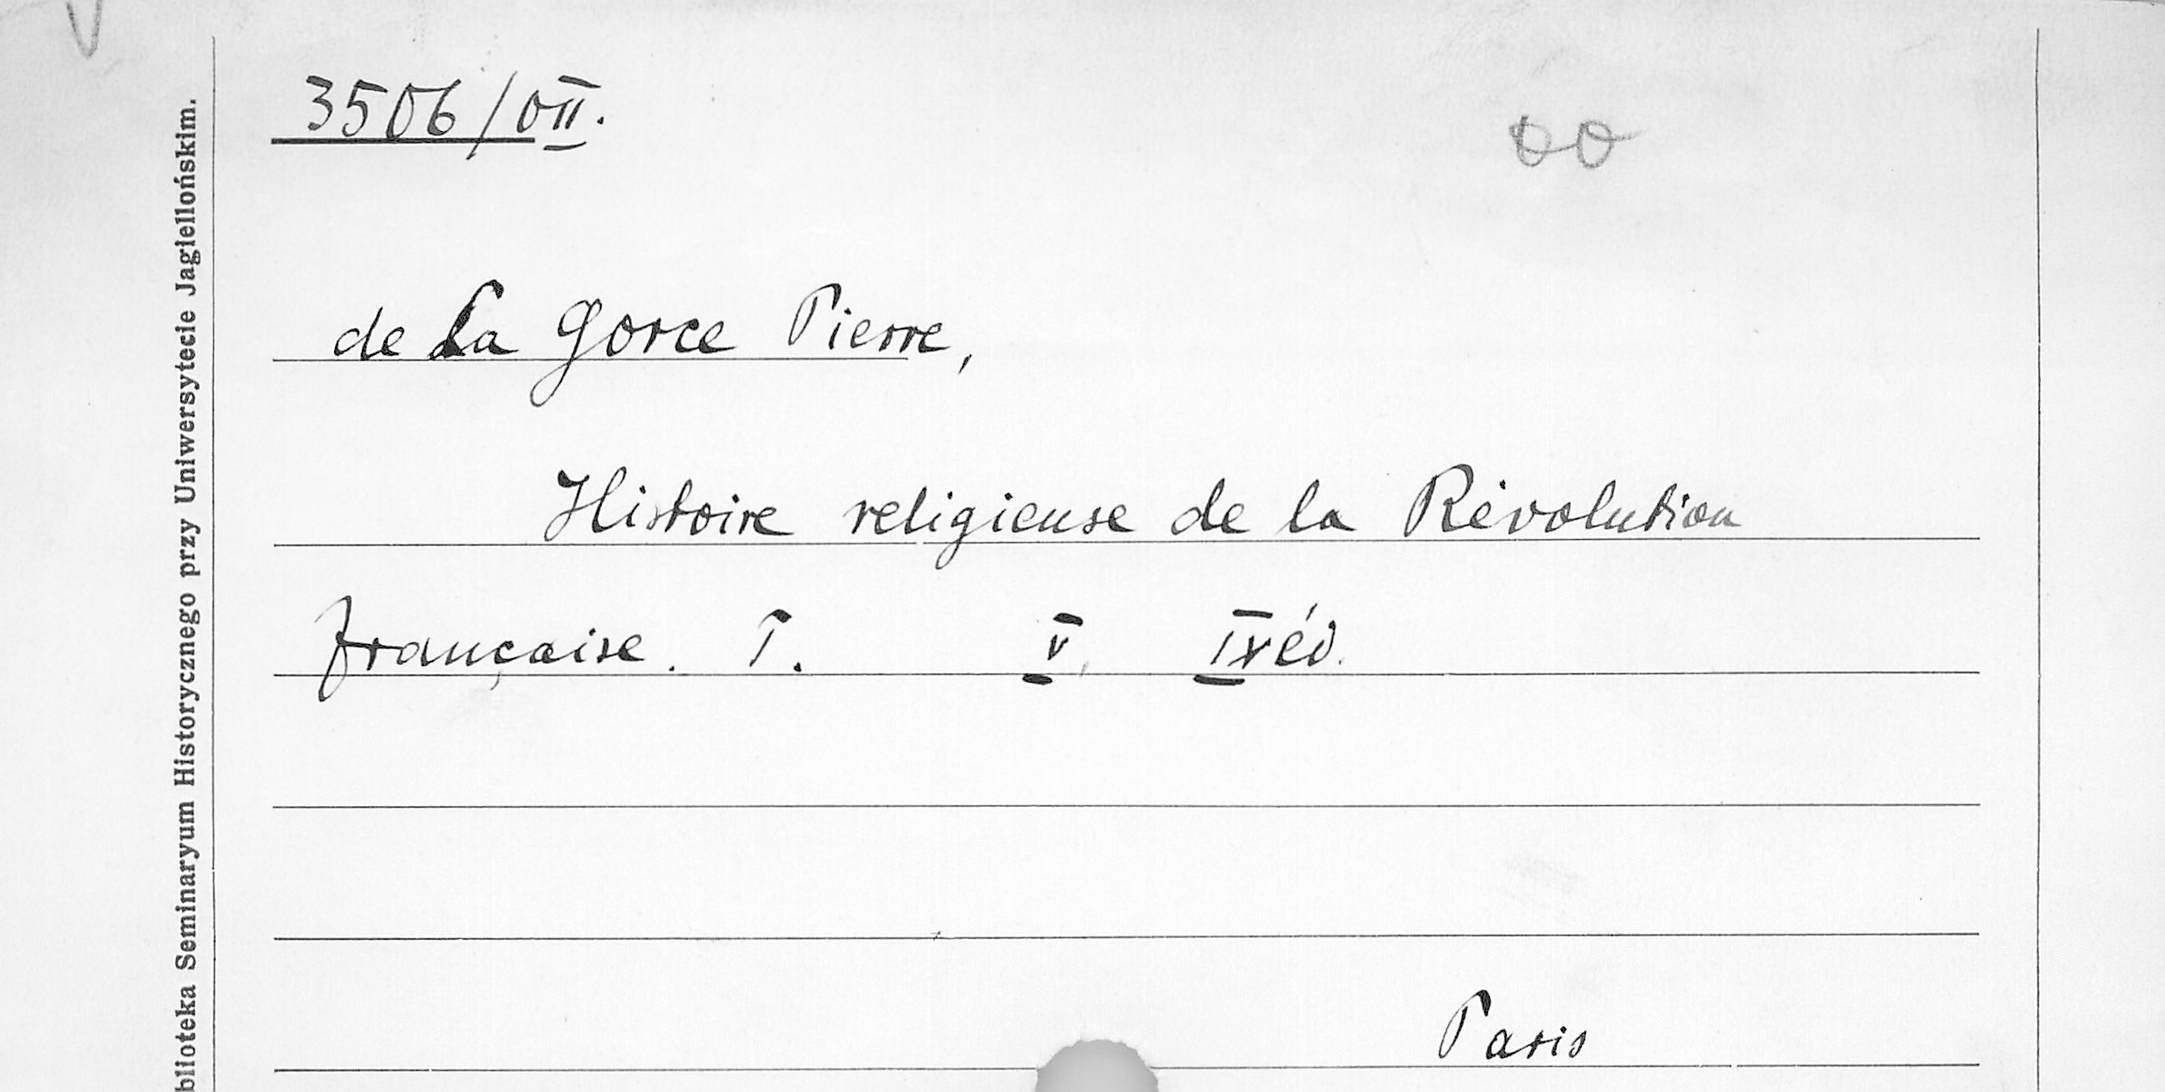 3506/0II.
de La Gorce Pierre,
Histoire religieuse de la Révolution
française. T. V, IV éd.
Paris
blioteka Seminaryum Historycznego przy Uniwersytecie Jagiellońskim.